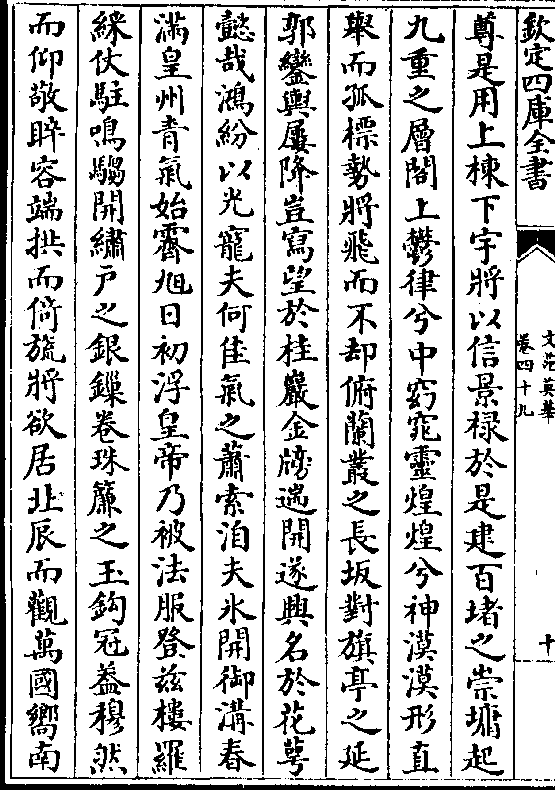 欽定四庫全書
文苑英華
卷四十九
十
尊是用上棟下宇將以信景祿於是建百堵之崇墉起
九重之層閣上鬱律兮中窈窕靈煌煌兮神漠漠形直
舉而孤標勢將飛而不却俯蘭叢之長坂對旗亭之延
郭鑾輿屢降豈寫望於桂巖金牓遄開遂興名於花萼
懿哉鴻紛以光寵夫何佳氣之蕭索洎夫氷開御溝春
滿皇州青氣始霽旭日初浮皇帝乃被法服登兹樓羅
綵仗駐鳴騶開繡戶之銀鏁卷珠簾之玉鈎冠葢穆然
而仰敬睟容端拱而倚旒將欲居北辰而觀萬國嚮南